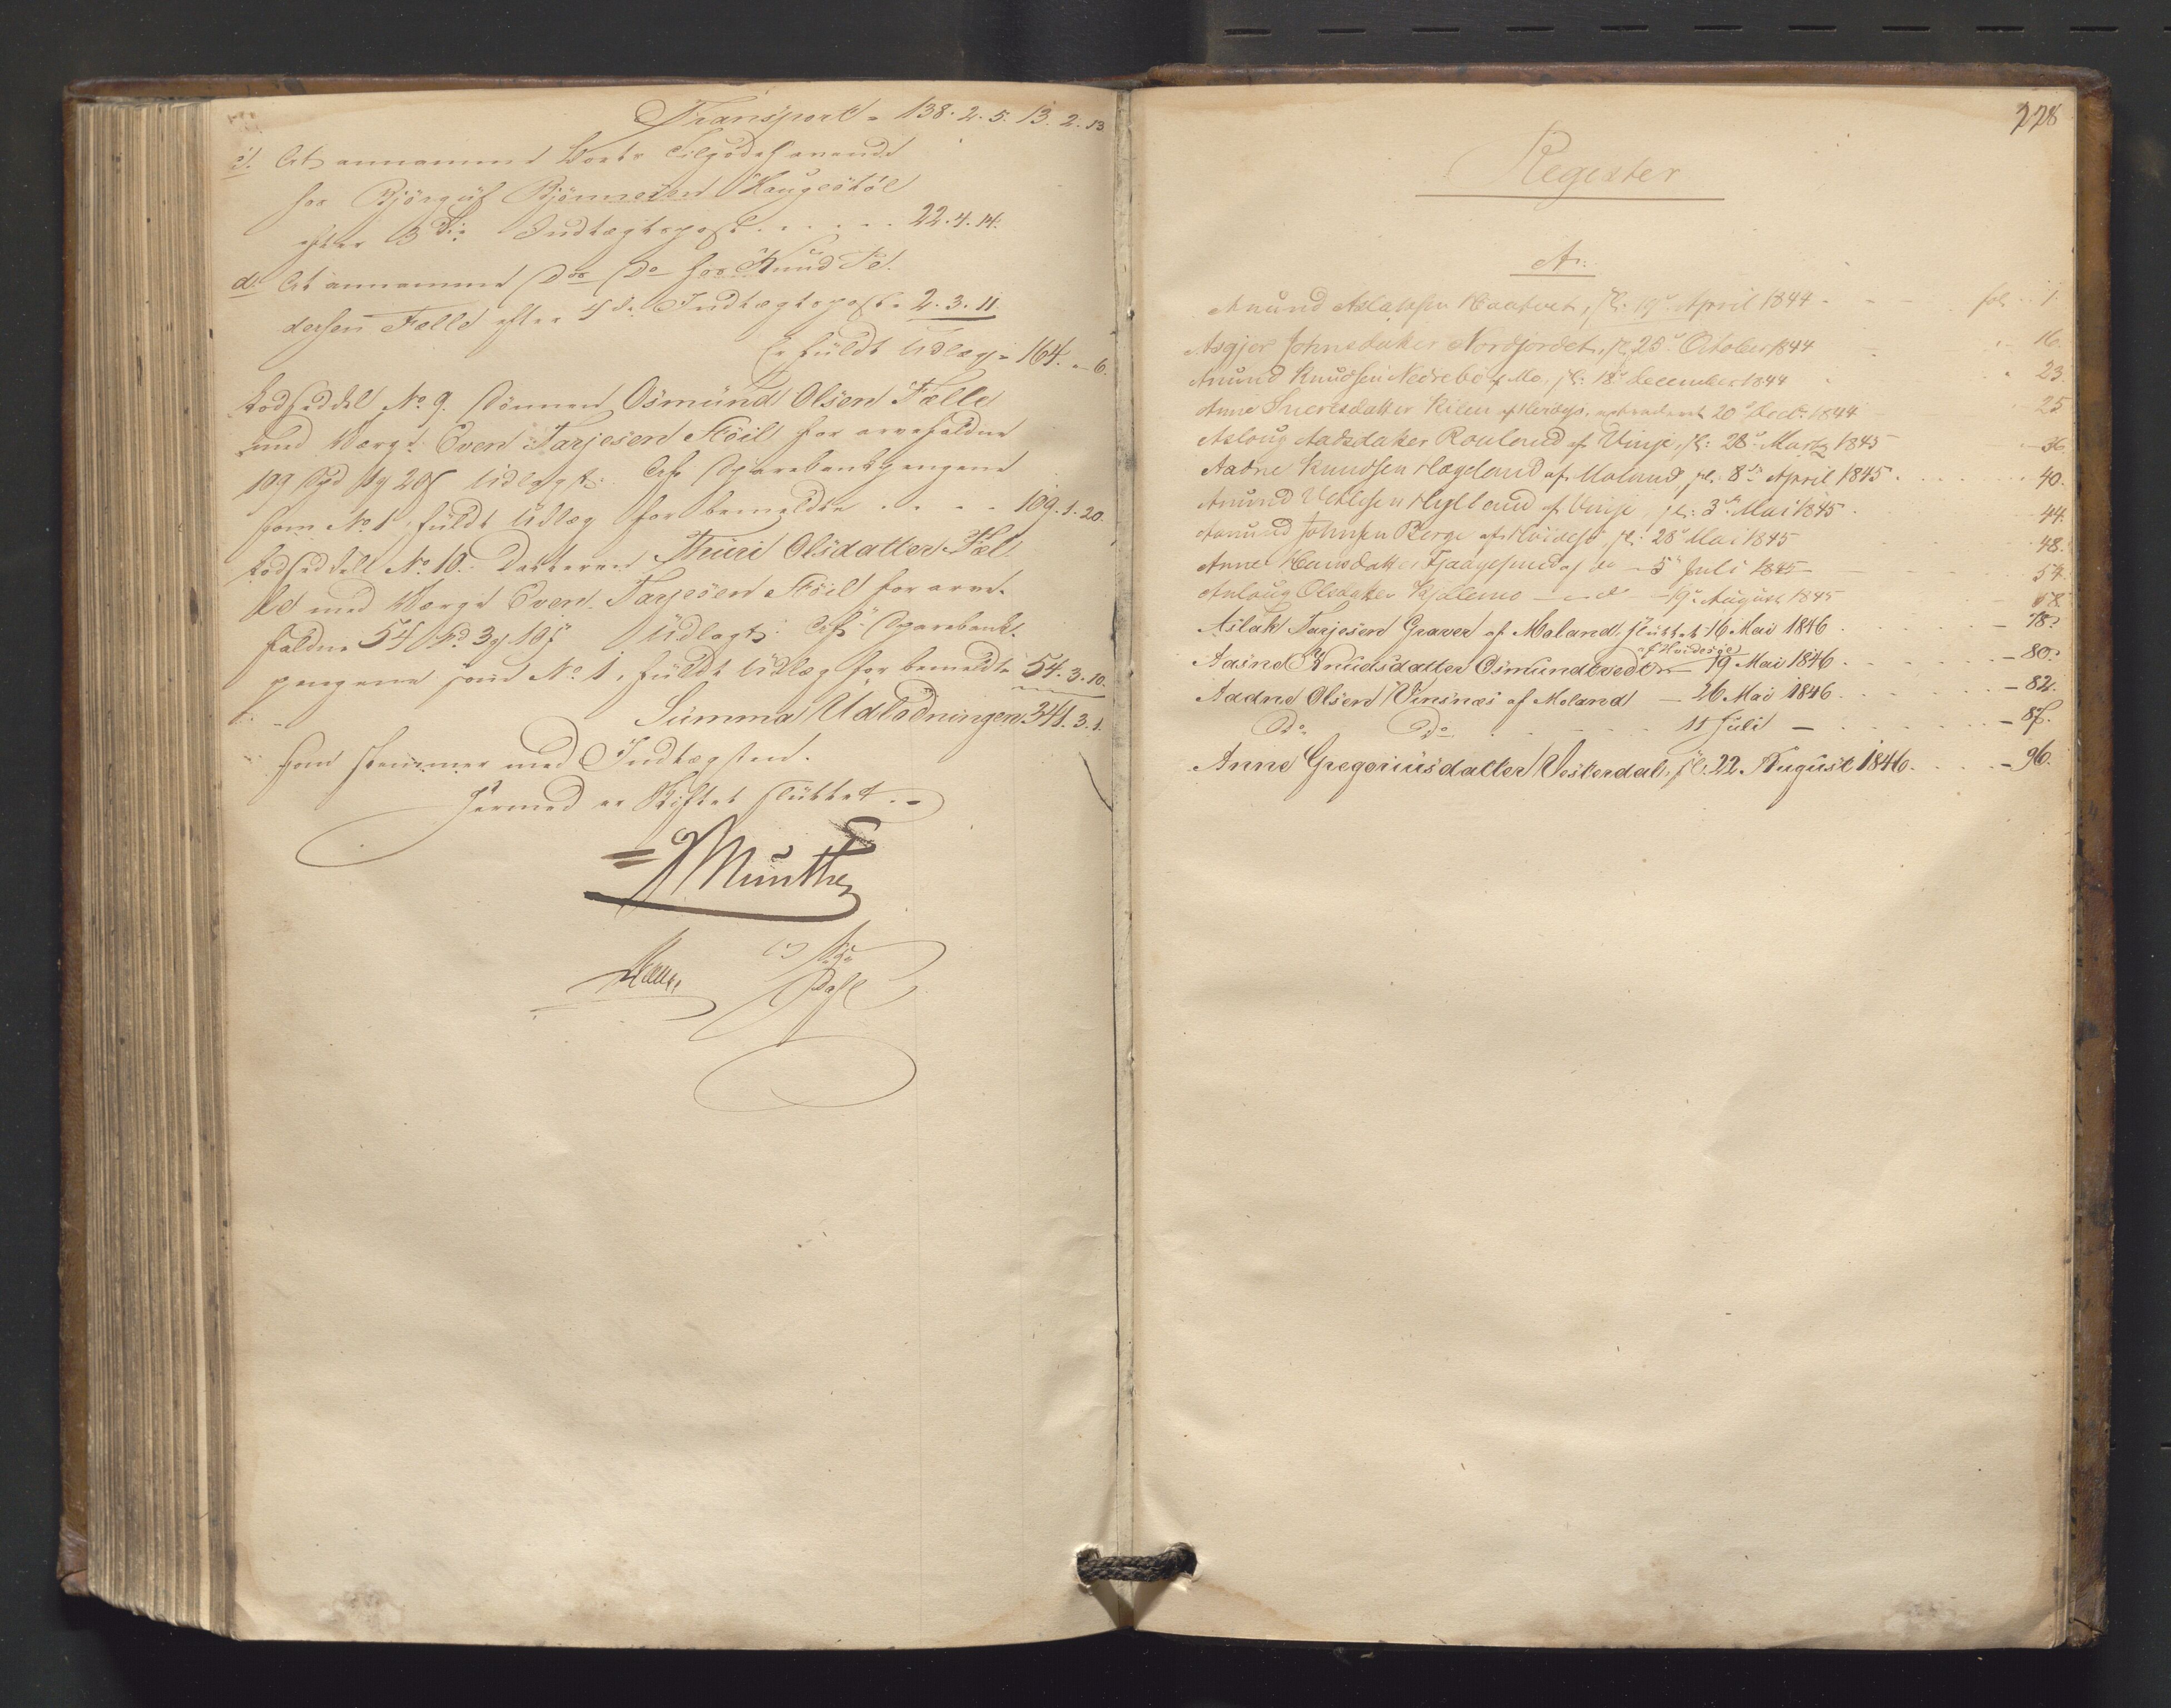 Transport = 138. 2. 5. 13. 2. 13
c. At annamme Boets Tilgodehavende
hos Bjørguf Bjørnesen Haugestøl
efter 3die Indtægtspost . . . . . 22. 4. 14.
d. At annamme Do Do hos Knud Pe-
dersen Fælle efter 4de Indtægtspost - 2. 3. 11
Er fuldt Udlæg = 164. - 6.
Lodseddel No. 9. Sønnen Osmund Olsen Fælle
med Værge Even Tarjesen Støil for arvefaldne
109 Spd 1 20 Udlagt: Af Sparebankpengene
som No 1, fuldt Udlæg for bemeldte . . . . 109. 1. 20.
Lodseddel No. 10. Datteren Thuri Olsdatter Fæl-
le med Værge Even Tarjesen Støil for arve-
faldne 54 Spd 3 10 Udlagt: Af Sparebank-
pengene som No. 1, fuldt Udlæg for bemeldte 54. 3. 10.
Summa Udlodningen 341. 3. 1.
som stemmer med Indtægten.
Hermed er Skiftet sluttet. -
Munthe
228
Register
A.
Anund Aslaksen , sl: 19de April 1844 - - - fol. 1.
Asgjer Johnsdatter Nordjordet, sl. 25de October 1844 16.
Anund Knudsen Nedrebø af Mo, sl: 18de December 1844 23.
Anne Sivertsdatter Kilen af Hvidesø, 20de Decbr. 1844 25
Asloug Aadsdatter Rouland af Vinje, sl: 28de Martz 1845 36.
Aadne Knudsen Hægeland af Moland, sl. 8de April 1845 . . . . . 40.
Anund Vetlesen Hylland af Vinje, sl: 3de Mai 1845 . 44.
Aanund Johnsen Berge af Hvidesø sl: 28de Mai 1845 48.
Anne Hansdatter Fjaagesund af do - 5te Juli 1845 - 54.
Anlaug Olsdatter Kjølemo - d - 9de August 1845 58
Aslak Tarjesen Graver af Moland, sluttet 16 Mai 1846 . . . . - 78.
af Hvidesøe
Aasne Knudsdatter Osmundtvedt - 19 Mai 1846 . . . . . - 80.
Aadne Olsen Vinsnæs af Moland - 26 Mai 1846 . . . . . - 82.
Do Do . . . . 11 Juli - . . . . - 87.
Anne Gregoriusdatter Vesterdal, sl. 22 August 1846 . . . . - 96.